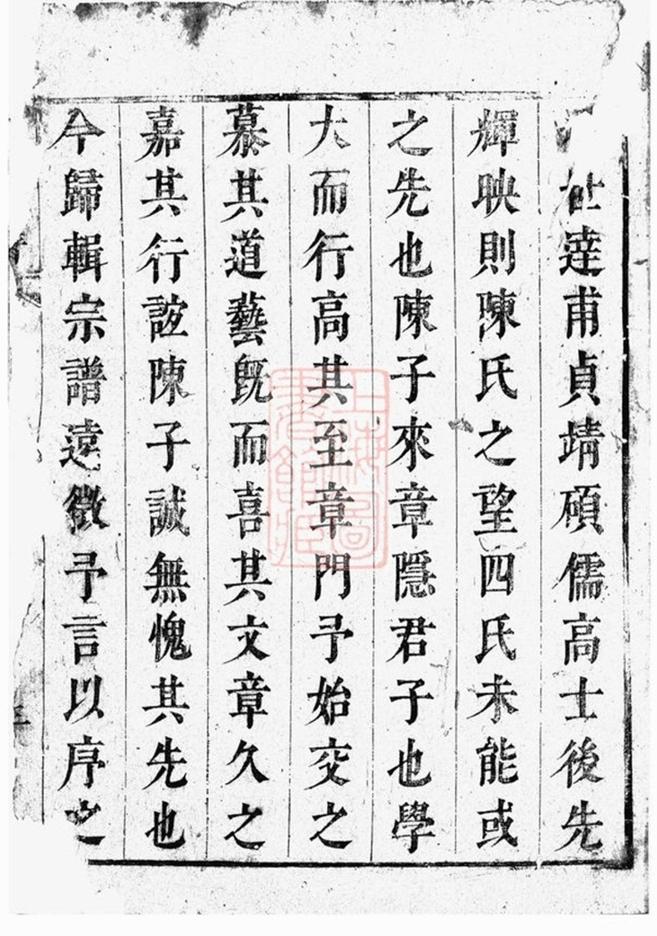 達甫貞靖碩儒高士後先
輝映則陳氏之望四氏未能或
之先也陳子來章隱君子也學
大而行高其至章門予始交之
慕其道藝旣而喜其文章久之
嘉其行誼陳子誠無愧其先也
今歸輯宗譜遠徵予言以序之
上海圖
書館藏